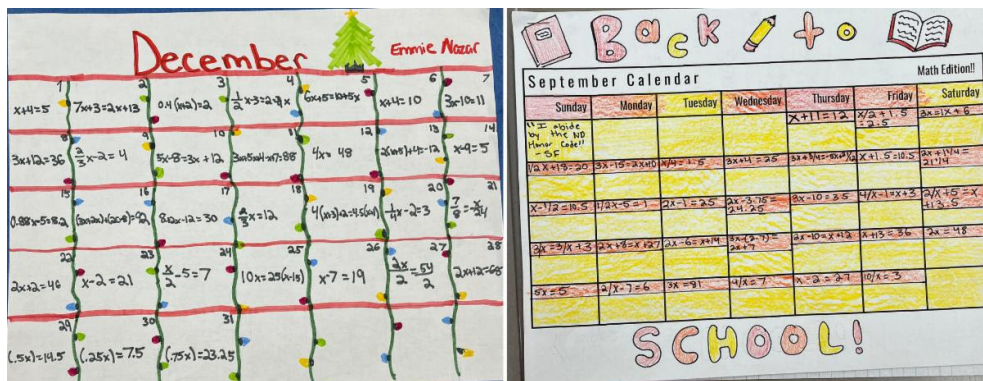 December
Emmie Nazar
1 2 3 4 5 6 7
x+4=5 7x+3=2x+13 0.4(x+2)=2 6x+5=10+5x x+4=10 3x-10=11
8 9 10 11 12 13 14
3x+12=36 2/3x-2=4 5x-8=3x+12 4x=48 x-9=5
15 16 17 18 19 20 21
0.88x-5=8.2 8x2x-12=30 2/3x=12 7/8=x/24
22 23 24 25 26 27 28
2x+2=46 x-2=21 x/2-5=7 10x=25(x-15) x-7=19 2x/2=54/2 2x+12=68
29 30 31
(.5x)=14.5 (.25x)=7.5 (.75x)=23.25
Back to
September Calendar
Math Edition!!
Sunday Monday Tuesday Wednesday Thursday Friday Saturday
"I abide
by the ND
Honor Code!!
-SF
x+11=12 x/2+1.5=2.5 3x=1x+6
1/2x+18=20 3x-15=2x+10 x/4=1.5 3x+4=25 x+1.5=10.5 2x+1/4=21 1/4
x-1/2=10.5 1/2x-5=1 2x-1=25 2x-3.75=24.25 3x-10=35 4/x-1=x+3 2/x+5=x+13.5
2x=3/x+3 2x+8=x+27 2x-6=x+14 3x-(2-7)=2x+7 2x-10=x+12 x+13=36 2x=48
5x=5 2/x-7=6 3x=81 4/x=7 x-2=27 10/x=3
SCHOOL!